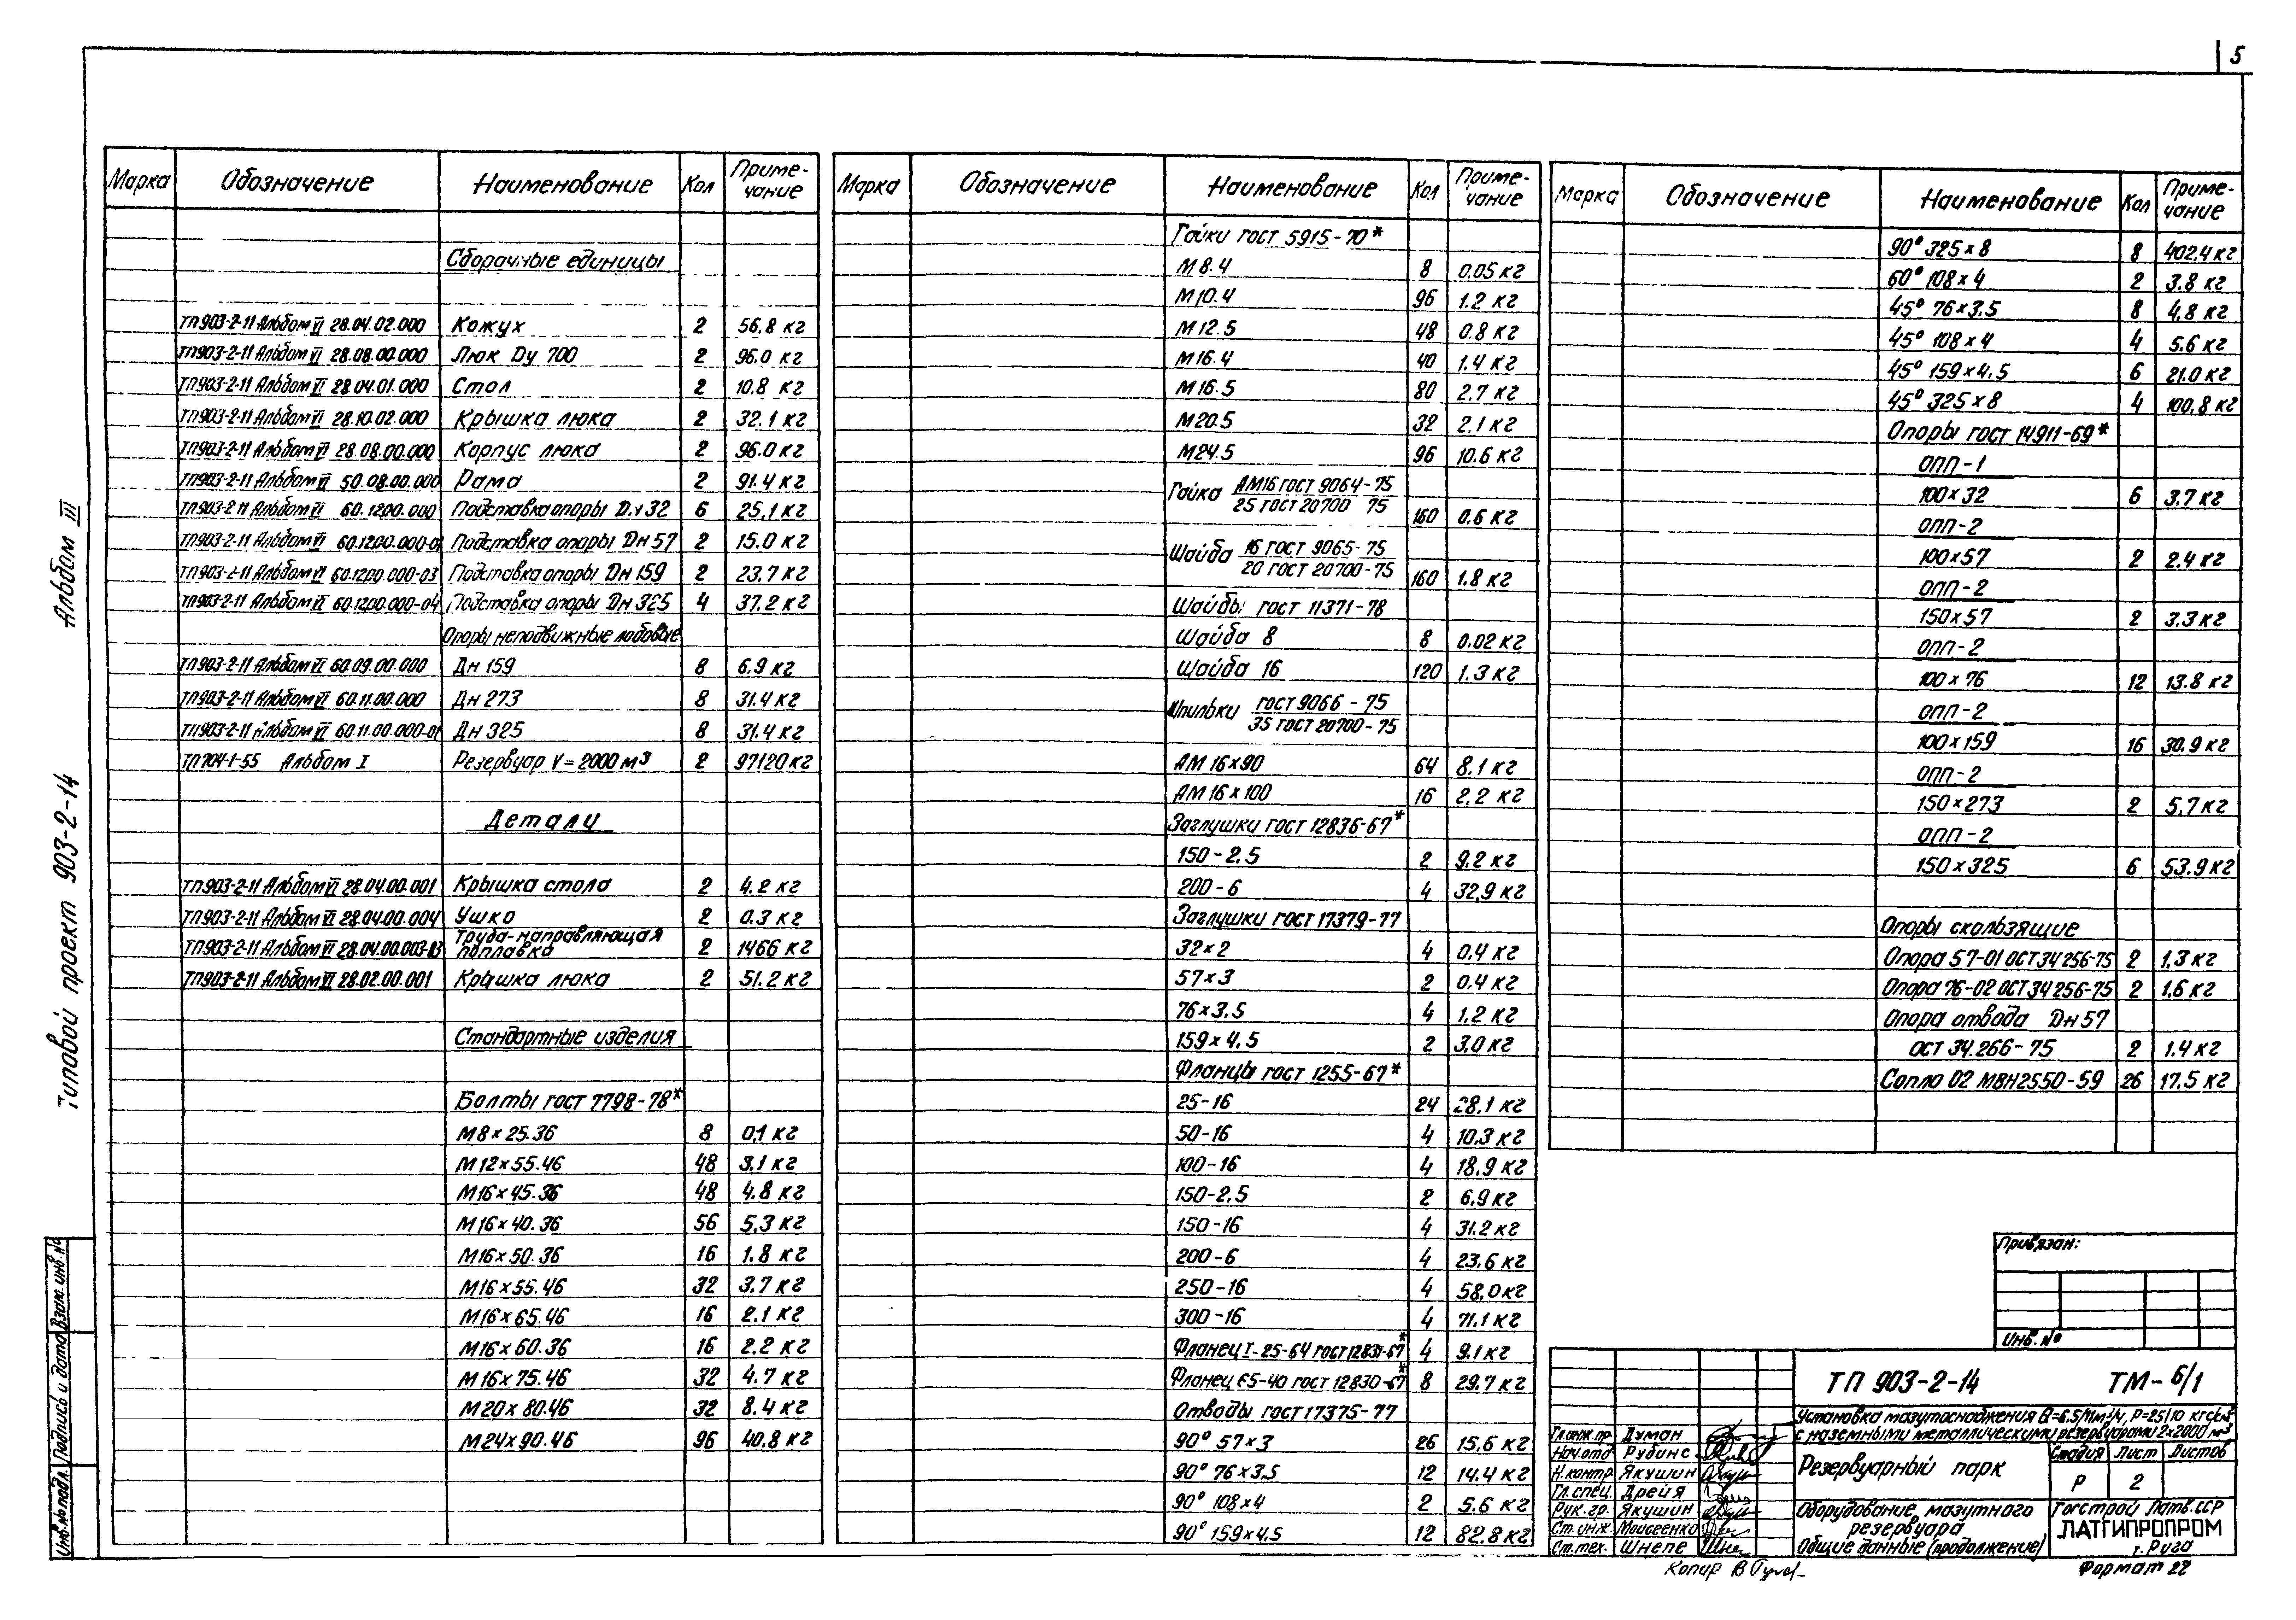 5
Альбом III
Типовой проект 903-2-14
Марка Обозначение Наименование Кол Примечание
Сборочные единицы
ТП903-2-11 Альбом VI 28.04.02.000 Кожух 2 56.8 кг
ТП903-2-11 Альбом VI 28.08.00.000 Люк Dу 700 2 96.0 кг
ТП903-2-11 Альбом VI 28.04.01.000 Стол 2 10.8 кг
ТП903-2-11 Альбом VI 28.10.02.000 Крышка люка 2 32.1 кг
ТП903-2-11 Альбом VI 28.08.00.000 Корпус люка 2 96.0 кг
ТП903-2-11 Альбом VI 50.08.00.000 Рама 2 91.4 кг
ТП903-2-11 Альбом VI 60.1200.000 Подставка опоры Dн 32 6 25,1 кг
ТП903-2-11 Альбом VI 60.1200.000-01 Подставка опоры Dн 57 2 15.0 кг
ТП903-2-11 Альбом VI 60.1200.000-03 Подставка опоры Dн 159 2 23.7 кг
ТП903-2-11 Альбом VI 60.1200.000-04 Подставка опоры Dн 325 4 37.2 кг
Опоры неподвижные лобовые
ТП903-2-11 Альбом VI 60.09.00.000 Дн 159 8 6.9 кг
ТП903-2-11 Альбом VI 60.11.00.000 Дн 273 8 31.4 кг
ТП903-2-11 Альбом VI 60.11.00.000-01 Дн 325 8 31.4 кг
ТП704-1-55 Альбом I Резервуар V=2000 м³ 2 97120 кг
Детали
ТП903-2-11 Альбом VI 28.04.00.001 Крышка стола 2 4.2 кг
ТП903-2-11 Альбом VI 28.04.00.004 Ушко 2 0.3 кг
ТП903-2-11 Альбом VI 28.04.00.003-03 Труба-направляющая поплавка 2 1466 кг
ТП903-2-11 Альбом VI 28.02.00.001 Крышка люка 2 51.2 кг
Стандартные изделия
Болты ГОСТ 7798-78*
М8×25.36 8 0,1 кг
М12×55.46 48 3.1 кг
М16×45.36 48 4.8 кг
М16×40.36 56 5,3 кг
М16×50.36 16 1.8 кг
М16×55.46 32 3.7 кг
М16×65.46 16 2.1 кг
М16×60.36 16 2.2 кг
М16×75.46 32 4.7 кг
М20×80.46 32 8.4 кг
М24×90.46 96 40.8 кг
Марка Обозначение Наименование Кол Примечание
Гайки ГОСТ 5915-70*
М8.4 8 0.05 кг
М10.4 96 1.2 кг
М12.5 48 0.8 кг
М16.4 40 1.4 кг
М16.5 80 2.7 кг
М20.5 32 2.1 кг
М24.5 96 10.6 кг
Гайка АМ16 ГОСТ 9064-75
25 ГОСТ 20700 75 160 0.6 кг
Шайба 16 ГОСТ 9065-75
20 ГОСТ 20700-75 160 1.8 кг
Шайбы ГОСТ 11371-78
Шайба 8 8 0.02 кг
Шайба 16 120 1.3 кг
Шпильки ГОСТ 9066-75
35 ГОСТ 20700-75
АМ 16×90 64 8.1 кг
АМ 16×100 16 2.2 кг
Заглушки ГОСТ 12836-67*
150-2.5 2 9.2 кг
200-6 4 32,9 кг
Заглушки ГОСТ 17379-77
32×2 4 0.4 кг
57×3 2 0.4 кг
76×3,5 4 1.2 кг
159×4.5 2 3.0 кг
Фланцы ГОСТ 1255-67*
25-16 24 28,1 кг
50-16 4 10.3 кг
100-16 4 18.9 кг
150-2,5 2 6,9 кг
150-16 4 31.2 кг
200-6 4 23.6 кг
250-16 4 58.0 кг
300-16 4 71.1 кг
Фланец I-25-64 ГОСТ 12831-67* 4 9.1 кг
Фланец 65-40 ГОСТ 12830-67* 8 29.7 кг
Отводы ГОСТ 17375-77
90° 57×3 26 15.6 кг
90° 76×3,5 12 14.4 кг
90° 108×4 2 5.6 кг
90° 159×4.5 12 82.8 кг
Марка Обозначение Наименование Кол Примечание
90° 325×8 8 402.4 кг
60° 108×4 2 3.8 кг
45° 76×3.5 8 4,8 кг
45° 108×4 4 5.6 кг
45° 159×4,5 6 21.0 кг
45° 325×8 4 100,8 кг
Опоры ГОСТ 14911-69*
ОПП-1
100×32 6 3.7 кг
ОПП-2
100×57 2 2.4 кг
ОПП-2
150×57 2 3.3 кг
ОПП-2
100×76 12 13.8 кг
ОПП-2
100×159 16 30.9 кг
ОПП-2
150×273 2 5,7 кг
ОПП-2
150×325 6 53.9 кг
Опоры скользящие
Опора 57-01 ОСТ 34 256-75 2 1.3 кг
Опора 76-02 ОСТ 34 256-75 2 1.6 кг
Опора отвода Dн 57
ОСТ 34.266-75 2 1.4 кг
Сопло 02 МВН 2550-59 26 17.5 кг
Привязан:
Инв. №
ТП 903-2-14 ТМ-6/1
Установка мазутоснабжения Q=6.5/11 м³/ч, P=25/10 кгс/см²
с наземными металлическими резервуарами 2×2000 м³
Гл.инж.пр. Думан
Нач.отд Рубинс
Н.контр. Якушин
Гл.спец. Дрейя
Рук.гр. Якушин
Ст.инж. Моисеенко
Ст.тех. Шнепе
Резервуарный парк
Стадия Лист Листов
Р 2
Оборудование мазутного
резервуара
Общие данные (продолжение)
Госстрой Латв.ССР
ЛАТГИПРОПРОМ
г. Рига
Копир В
Формат 22
Инв.№ подл. Подпись и дата Взам.инв.№